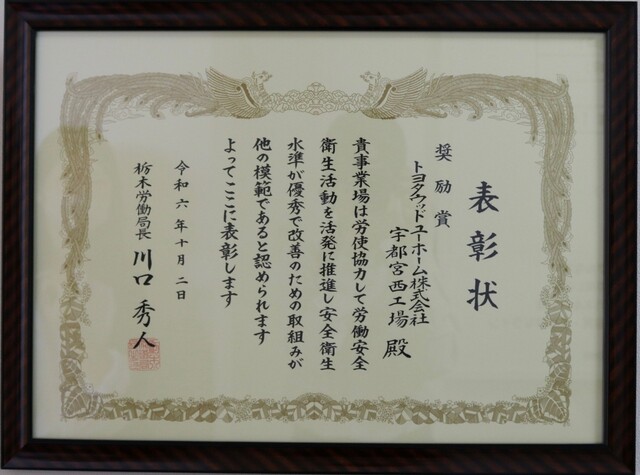 表彰状
奨励賞
トヨタウッドユーホーム株式会社
宇都宮西工場 殿
貴事業場は労使協力して労働安全
衛生活動を活発に推進し安全衛生
水準が優秀で改善のための取組みが
他の模範であると認められます
よってここに表彰します
令和六年十月二日
栃木労働局長 川口秀人